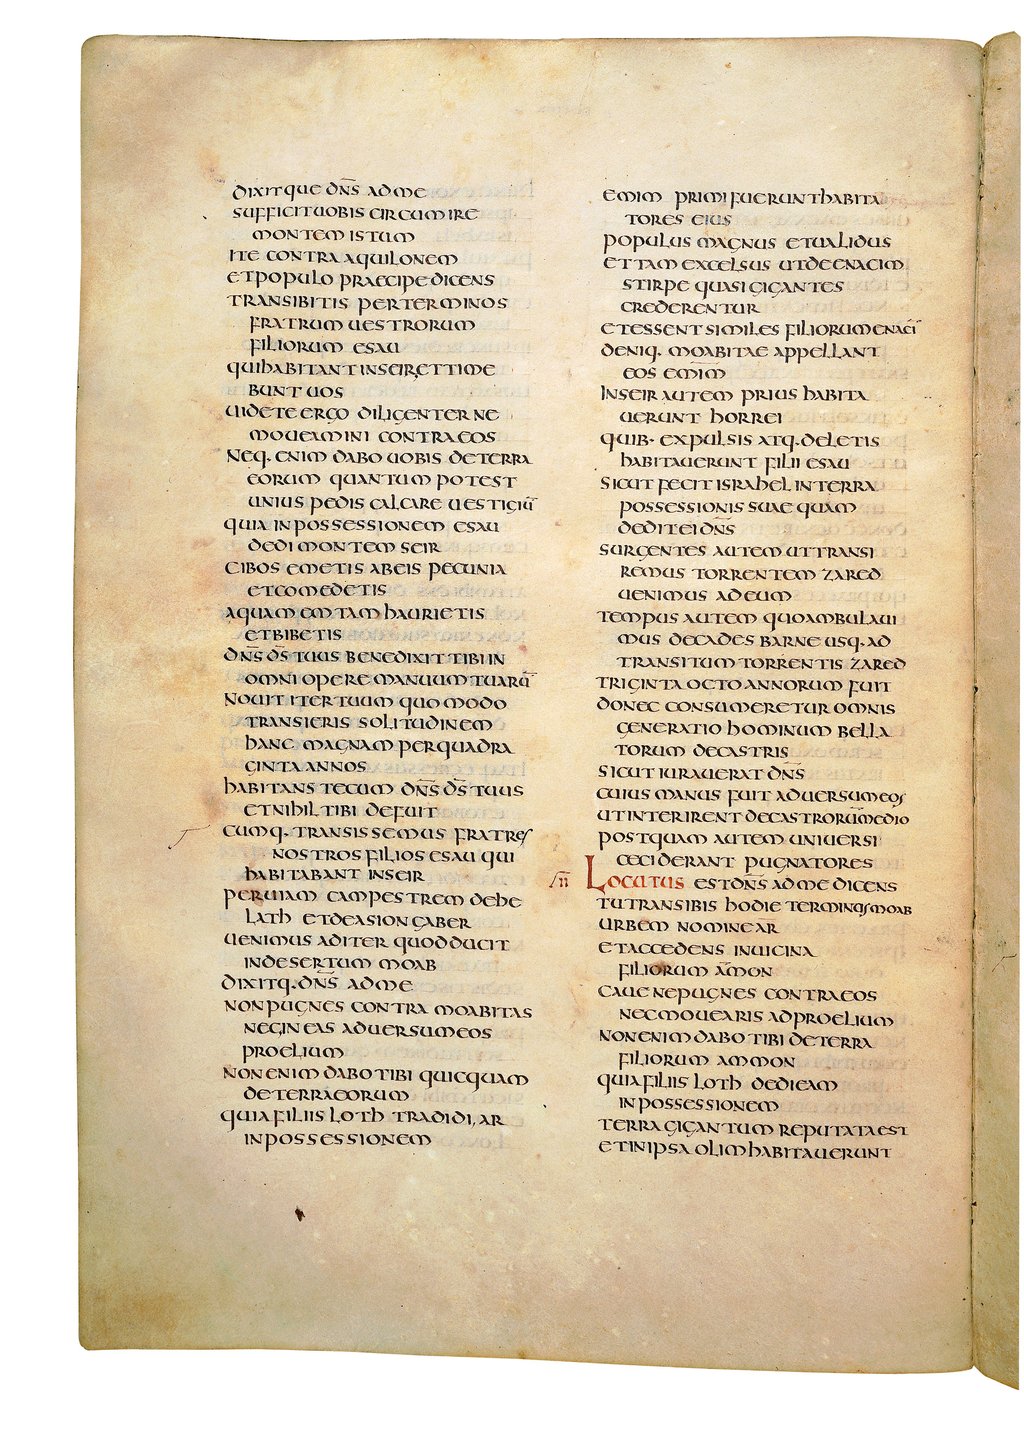 dixitque dn̄s ad me
sufficit uobis circumire
montem istum
ite contra aquilonem
et populo praecipe dicens
transibitis per terminos
fratrum uestrorum
filiorum esau
qui habitant in seir et time
bunt uos
uidete ergo diligenter ne
moueamini contra eos
neq. enim dabo uobis de terra
eorum quantum potest
unius pedis calcare uestigiū
quia in possessionem esau
dedi montem seir
cibos emetis ab eis pecunia
et comedetis
aquam emtam haurietis
et bibetis
dn̄s ds̄ tuus benedixit tibi in
omni opere manuum tuarū
nouit iter tuum quomodo
transieris solitudinem
hanc magnam per quadra
ginta annos
habitans tecum dn̄s ds̄ tuus
et nihil tibi defuit
cumq. transissemus fratres
nostros filios esau qui
habitabant in seir
per uiam campestrem de he
lath et de asiongaber
uenimus ad iter quod ducit
in desertum moab
dixitq. dn̄s ad me
non pugnes contra moabitas
nec ineas aduersum eos
proelium
non enim dabo tibi quicquam
de terra eorum
quia filiis loth tradidi, ar
in possessionem
emim primi fuerunt habita
tores eius
populus magnus et ualidus
et tam excelsus ut de enacim
stirpe quasi gigantes
crederentur
et essent similes filiorum enacī
deniq. moabitae appellant
eos emim
in seir autem prius habita
uerunt horrei
quib. expulsis atq. deletis
habitauerunt filii esau
sicut fecit israhel in terra
possessionis suae quam
dedit ei dn̄s
surgentes autem ut transi
remus torrentem zared
uenimus ad eum
tempus autem quo ambulaui
mus de cades barne usq. ad
transitum torrentis zared
triginta octo annorum fuit
donec consumeretur omnis
generatio hominum bella
torum de castris
sicut iurauerat dn̄s
cuius manus fuit aduersum eos
ut interirent de castrorū medio
postquam autem uniuersi
ceciderant pugnatores
uii Locutus est dn̄s ad me dicens
tu transibis hodie terminos moab
urbem nomine ar
et accedens in uicina
filiorum ammon
caue ne pugnes contra eos
nec mouearis ad proelium
non enim dabo tibi de terra
filiorum ammon
quia filiis loth dedi eam
in possessionem
terra gigantum reputata est
et in ipsa olim habitauerunt